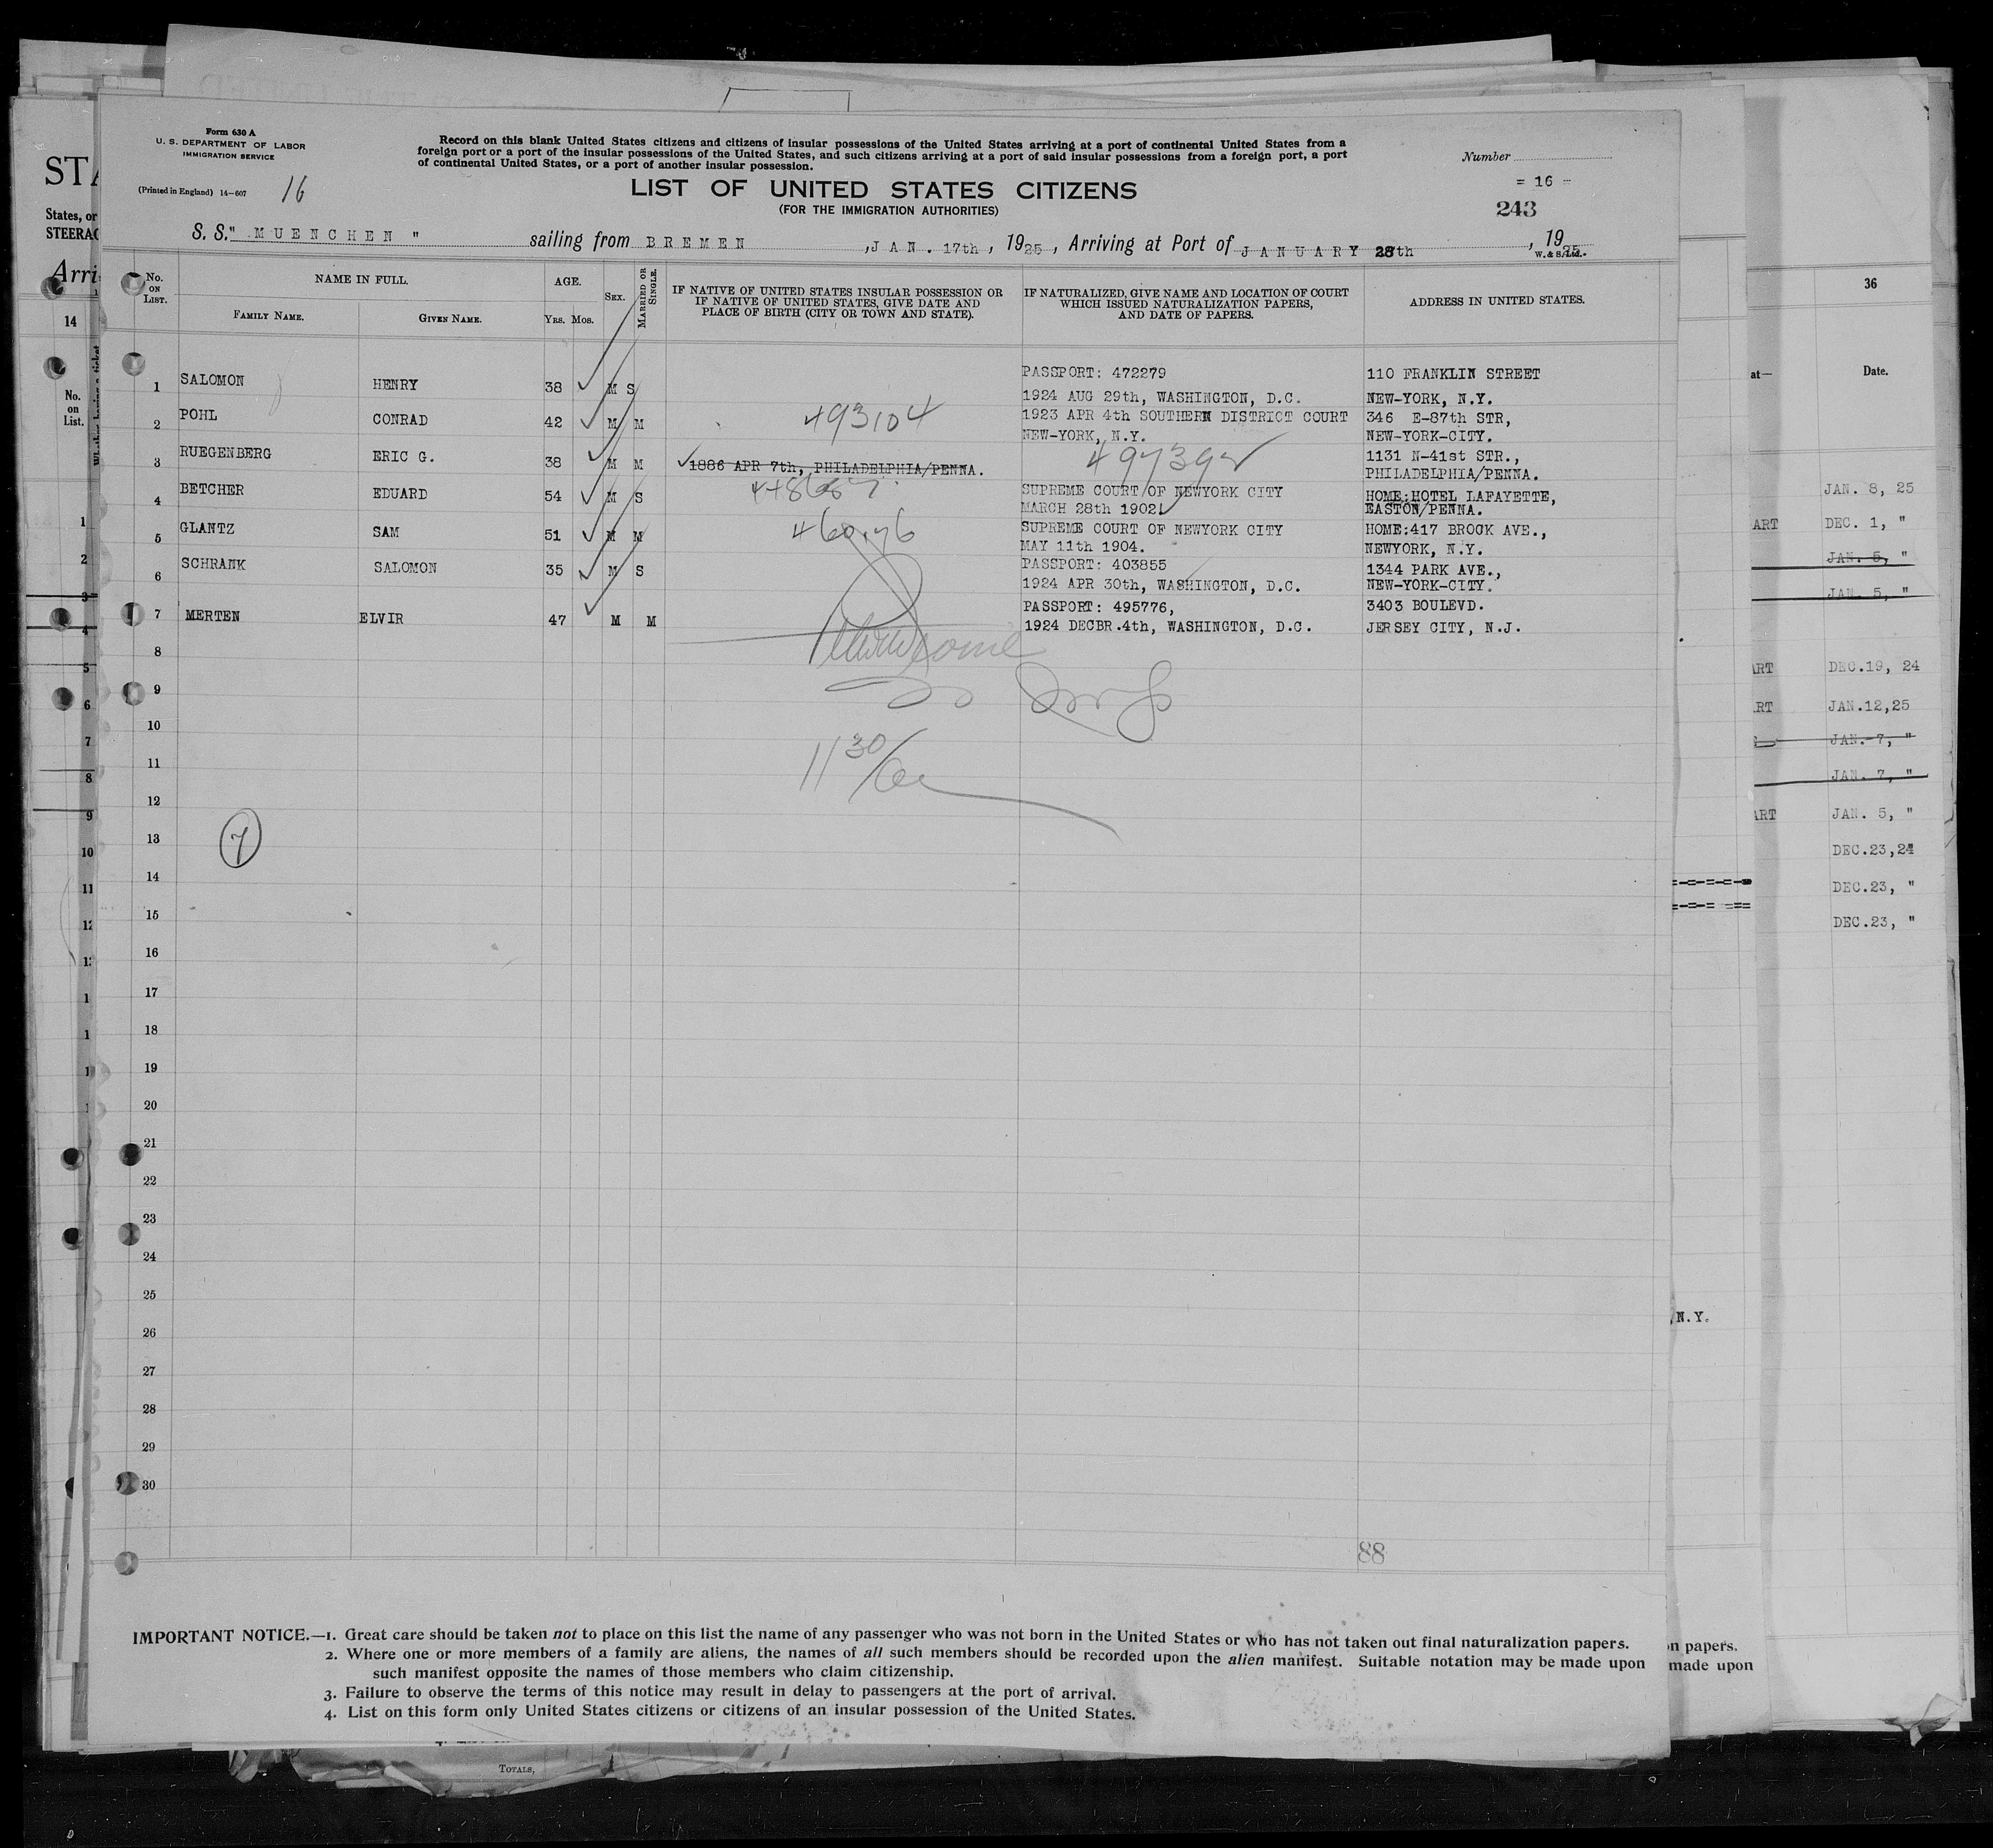 Form 630 A
U. S. DEPARTMENT OF LABOR
IMMIGRATION SERVICE
(Printed in England) 14-607
16
Record on this blank United States citizens and citizens of insular possessions of the United States arriving at a port of continental United States from a
foreign port or a port of the insular possessions of the United States, and such citizens arriving at a port of said insular possessions from a foreign port, a port
of continental United States, or a port of another insular possession.
Number
= 16 =
243
LIST OF UNITED STATES CITIZENS
(FOR THE IMMIGRATION AUTHORITIES)
S. S. " MUENCHEN " sailing from BREMEN , JAN. 17th , 1925 , Arriving at Port of JANUARY 28th , 1925
W. & S. Ltd.
No. ON LIST. NAME IN FULL. AGE. SEX. MARRIED OR SINGLE. IF NATIVE OF UNITED STATES INSULAR POSSESSION OR IF NATIVE OF UNITED STATES, GIVE DATE AND PLACE OF BIRTH (CITY OR TOWN AND STATE). IF NATURALIZED, GIVE NAME AND LOCATION OF COURT WHICH ISSUED NATURALIZATION PAPERS, AND DATE OF PAPERS. ADDRESS IN UNITED STATES.
FAMILY NAME. GIVEN NAME. YRS. MOS.
1 SALOMON HENRY 38 M S PASSPORT: 472279 110 FRANKLIN STREET
1924 AUG 29th, WASHINGTON, D.C. NEW-YORK, N.Y.
2 POHL CONRAD 42 M M 493104 1923 APR 4th SOUTHERN DISTRICT COURT 346 E-87th STR,
NEW-YORK, N.Y. NEW-YORK-CITY.
3 RUEGENBERG ERIC G. 38 M M 1886 APR 7th, PHILADELPHIA/PENNA. 1131 N-41st STR.,
PHILADELPHIA/PENNA.
4 BETCHER EDUARD 54 M S SUPREME COURT OF NEWYORK CITY HOME:HOTEL LAFAYETTE,
MARCH 28th 1902 EASTON/PENNA.
5 GLANTZ SAM 51 M M SUPREME COURT OF NEWYORK CITY HOME:417 BROOK AVE.,
MAY 11th 1904. NEWYORK, N.Y.
6 SCHRANK SALOMON 35 M S PASSPORT: 403855 1344 PARK AVE.,
1924 APR 30th, WASHINGTON, D.C. NEW-YORK-CITY.
7 MERTEN ELVIR 47 M M PASSPORT: 495776, 3403 BOULEVD.
1924 DECBR.4th, WASHINGTON, D.C. JERSEY CITY, N.J.
8
9
10
11
11 30/
12
13
7
14
15
16
17
18
19
20
21
22
23
24
25
26
27
28
29
30
88
IMPORTANT NOTICE.—1. Great care should be taken not to place on this list the name of any passenger who was not born in the United States or who has not taken out final naturalization papers.
2. Where one or more members of a family are aliens, the names of all such members should be recorded upon the alien manifest. Suitable notation may be made upon
such manifest opposite the names of those members who claim citizenship.
3. Failure to observe the terms of this notice may result in delay to passengers at the port of arrival.
4. List on this form only United States citizens or citizens of an insular possession of the United States.
States, or
Arri
14
No.
on
List.
36
Date.
at—
JAN. 8, 25
ART DEC. 1, "
JAN. 5, "
JAN. 5, "
ART DEC.19, 24
RT JAN.12,25
JAN. 7, "
JAN. 7, "
ART JAN. 5, "
DEC.23,24
DEC.23, "
DEC.23, "
N.Y.
n papers.
made upon
TOTALS,